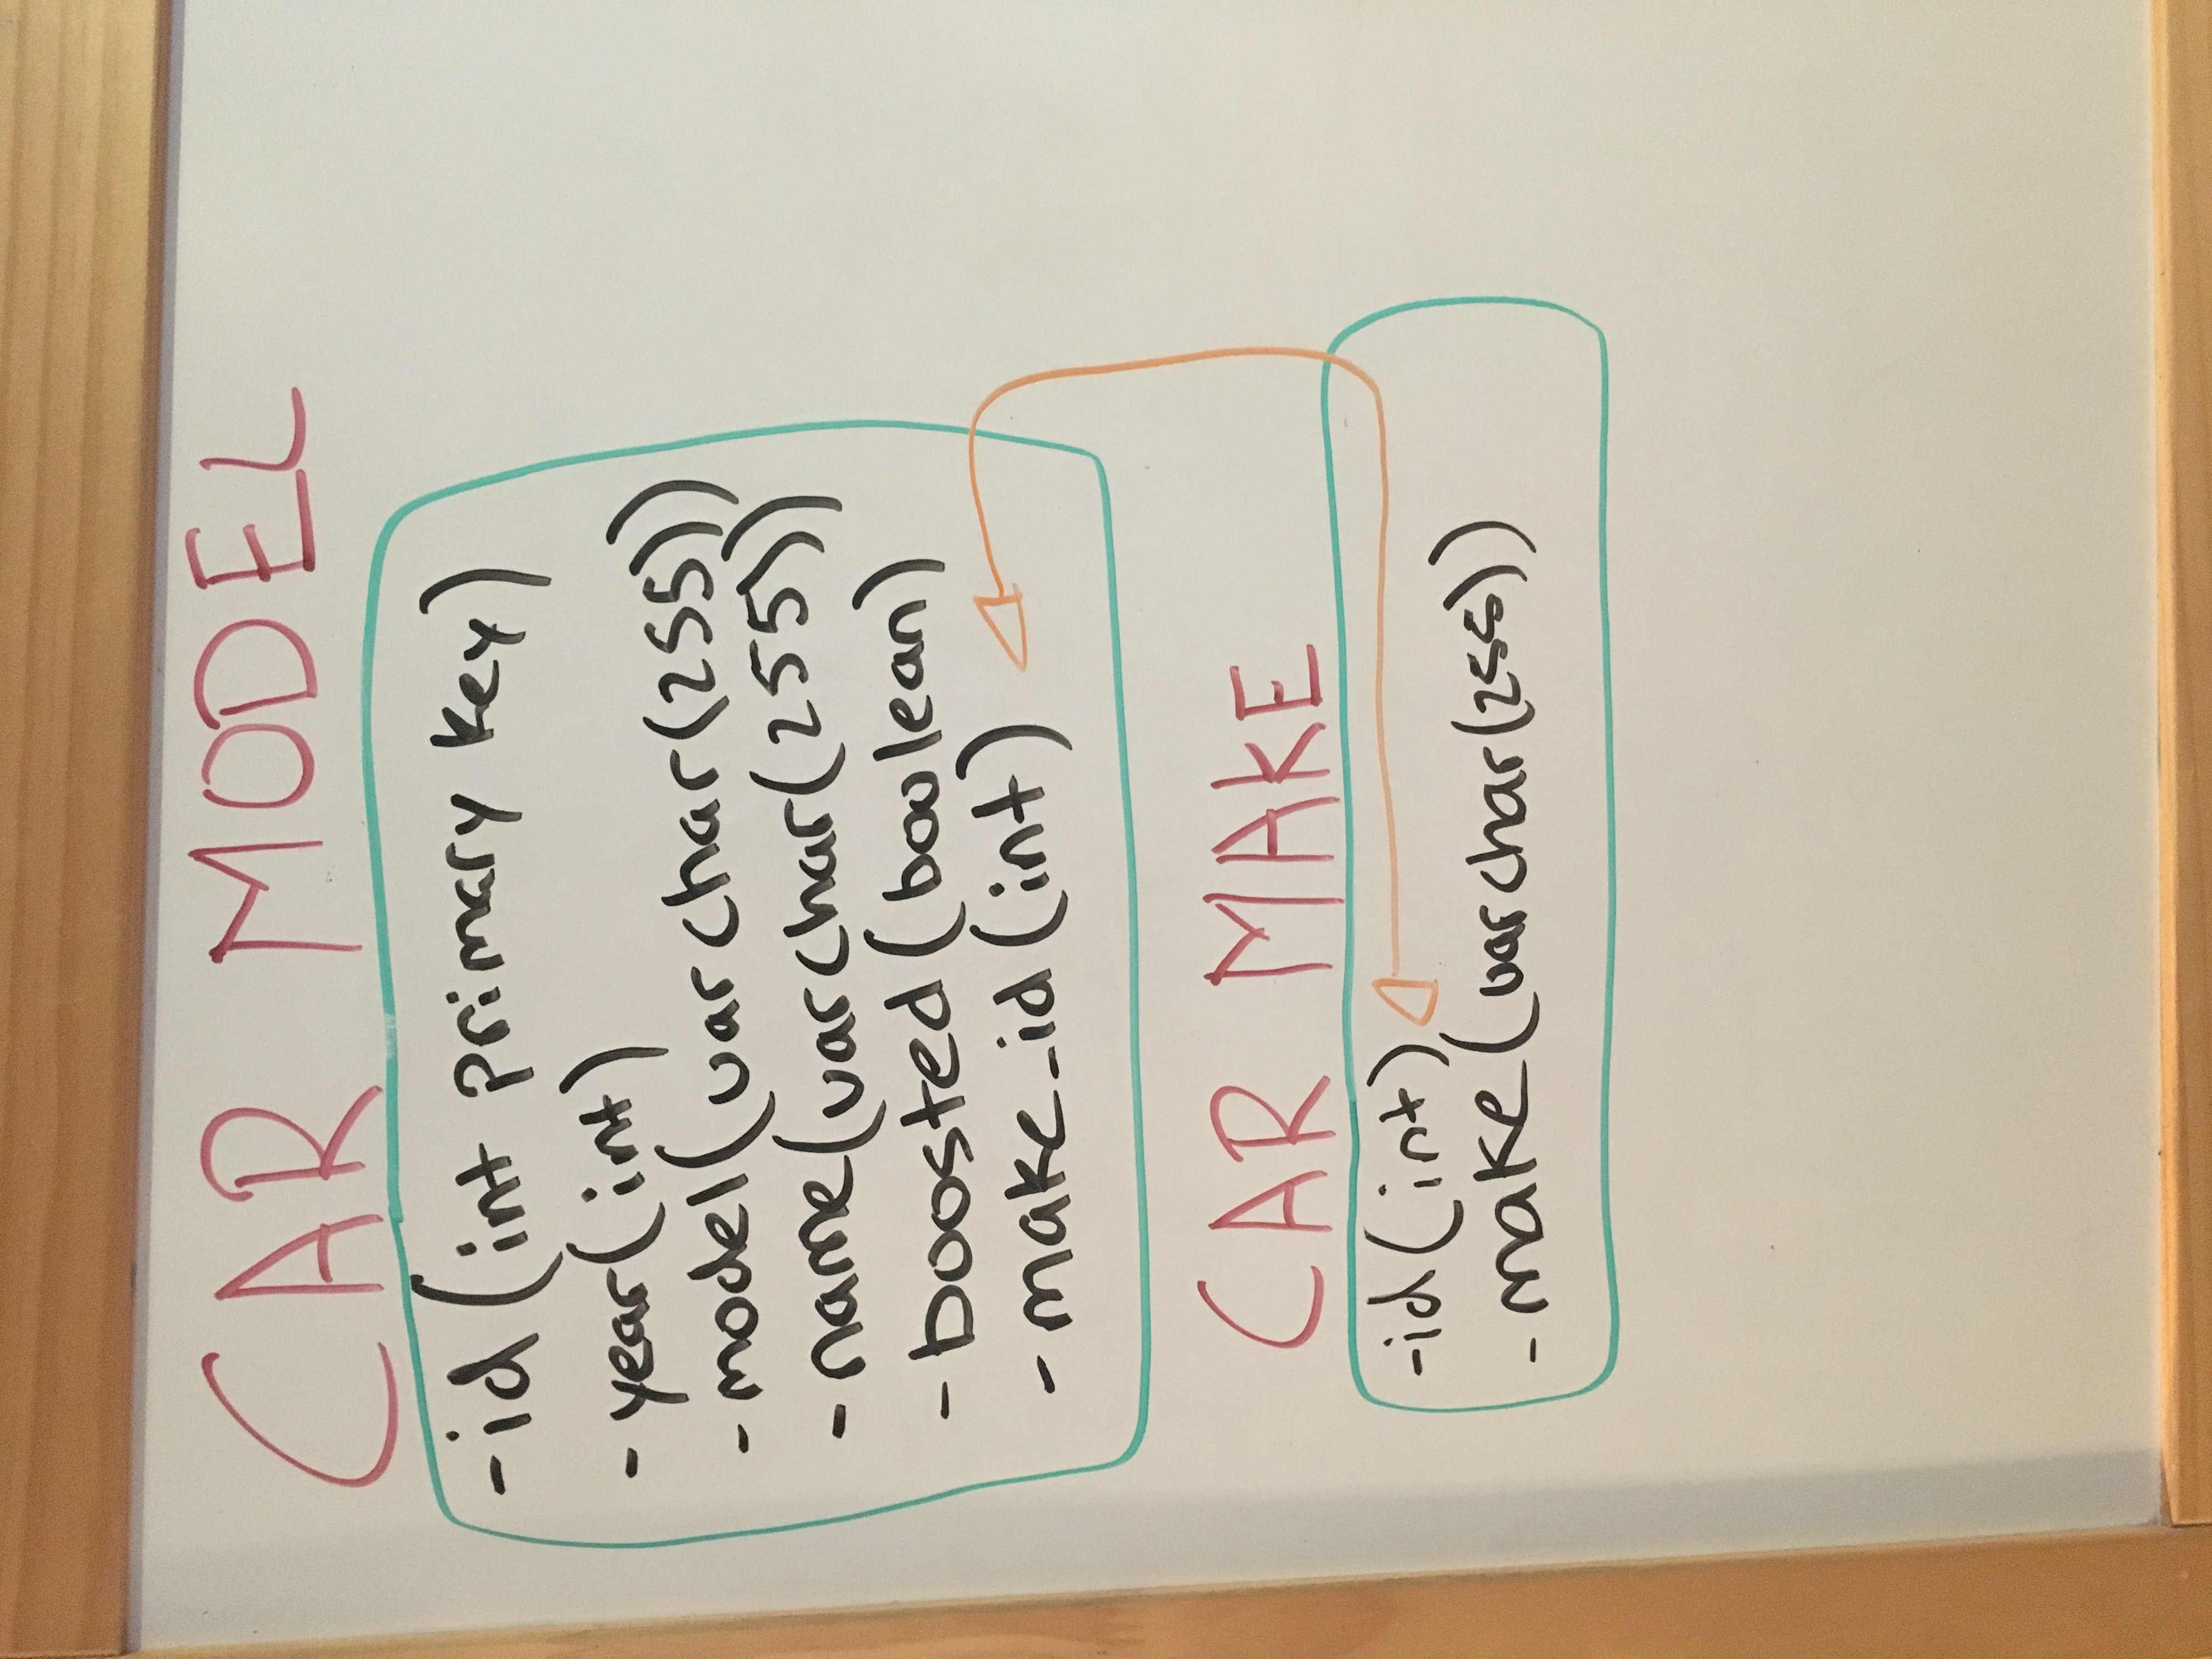 CAR MODEL
-id (int primary key)
- year (int)
- model (varchar(255))
- name (varchar(255))
- boosted (boolean)
- make_id (int)
CAR MAKE
-id (int)
- make (varchar(255))